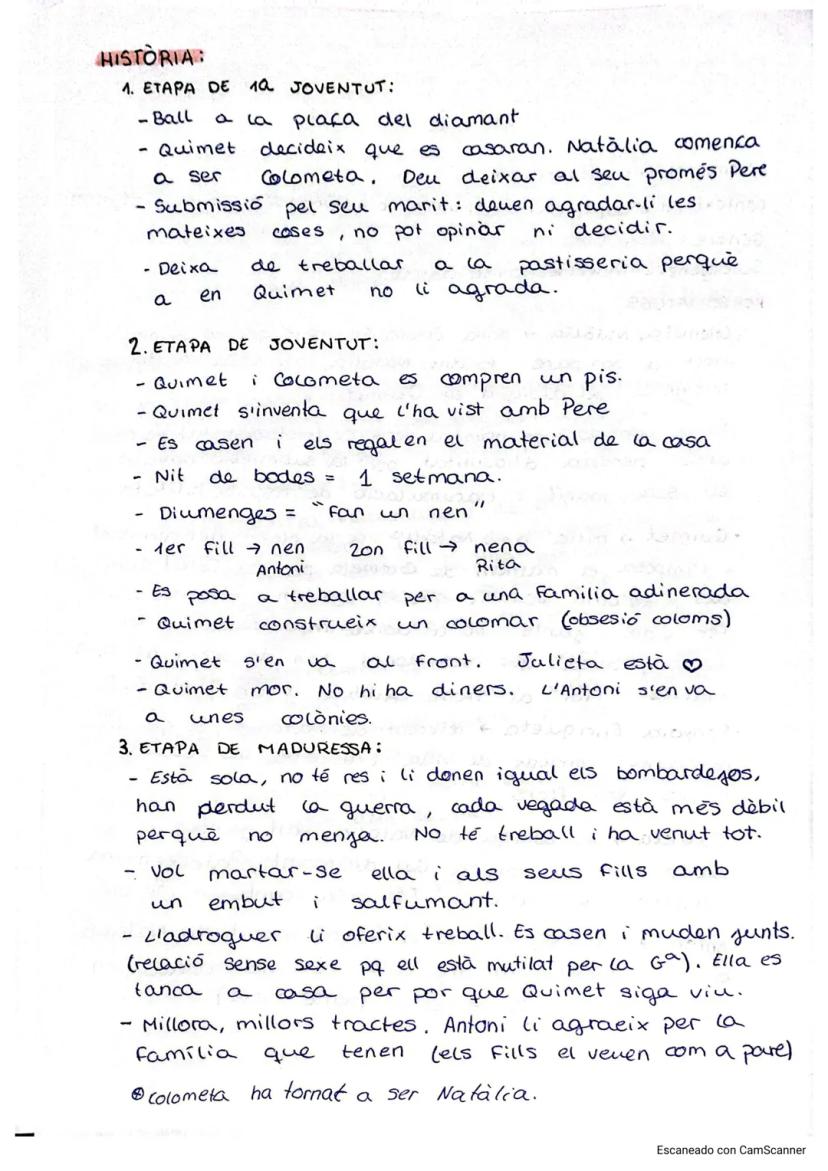 HISTÒRIA:
1. ETAPA DE 1a JOVENTUT:
- Ball a la plaça del diamant
- Quimet decideix que es casaran. Natàlia comença
a ser Colometa. Deu deixar al seu promés Pere
- Submissió pel seu marit: deuen agradar-li les
mateixes coses, no pot opinar ni decidir.
- Deixa de treballar a la pastisseria perquè
a en Quimet no li agrada.
2. ETAPA DE JOVENTUT:
- Quimet i Colometa es compren un pis.
- Quimet s'inventa que l'ha vist amb Pere
- Es casen i els regalen el material de la casa
- Nit de bodes = 1 setmana.
- Diumenges = "Fan un nen"
- 1er fill → nen 2on fill → nena
Antoni Rita
- Es posa a treballar per a una família adinerada
- Quimet construeix un colomar (obsesió coloms)
- Quimet s'en va al front. Julieta està ♡
- Quimet mor. No hi ha diners. L'Antoni s'en va
a unes colònies.
3. ETAPA DE MADURESSA:
- Està sola, no té res i li donen igual els bombardejos,
han perdut la guerra, cada vegada està més dèbil
perquè no menja. No té treball i ha venut tot.
- Vol martar-se ella i als seus fills amb
un embut i salfumant.
- L'adroquer li oferix treball. Es casen i muden junts.
(relació sense sexe pq ell està mutilat per la Gª). Ella es
tanca a casa per por que Quimet siga viu.
- Millora, millors tractes. Antoni li agraeix per la
família que tenen (els fills el veuen com a pare)
⊛ Colometa ha tornat a ser Natàlia.
Escaneado con CamScanner